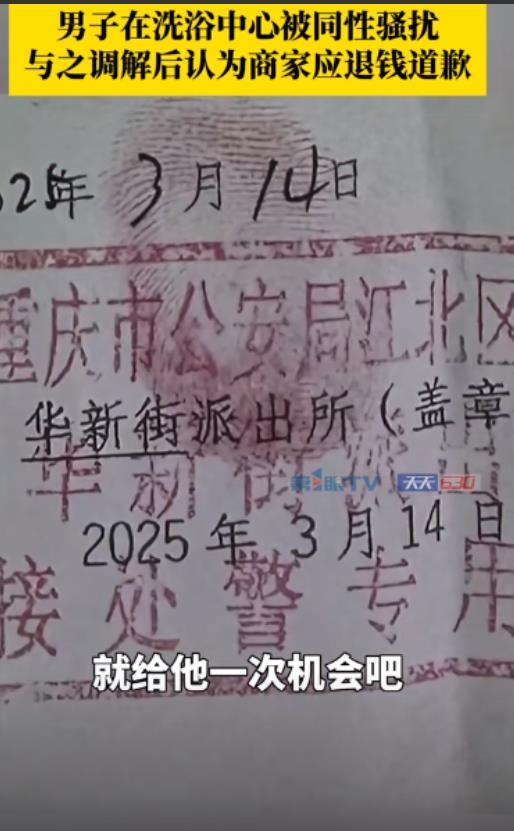 男子在洗浴中心被同性骚扰
与之调解后认为商家应退钱道歉
25年3月14日
重庆市公安局江北区
华新街派出所（盖章
华新街
第1眼TV 天天630
2025年3月14日
接处警专用
就给他一次机会吧